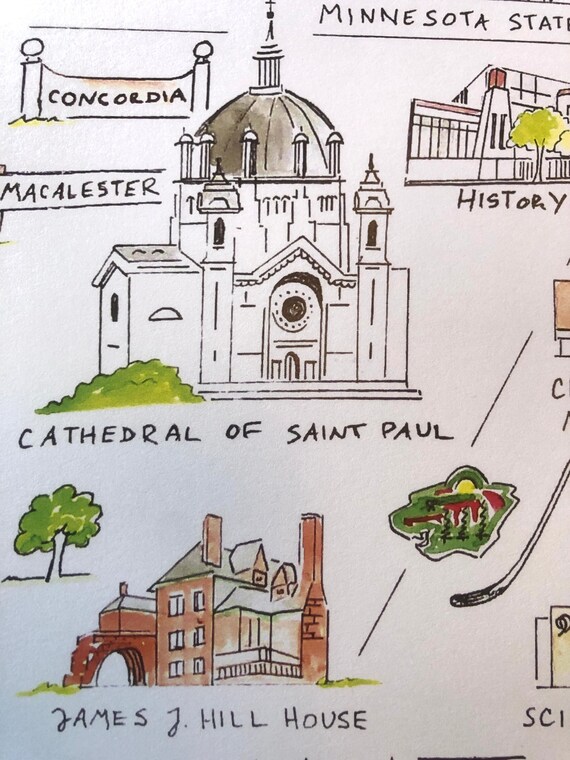 MINNESOTA STATE
CONCORDIA
MACALESTER
HISTORY
CATHEDRAL OF SAINT PAUL
JAMES J. HILL HOUSE
SCI